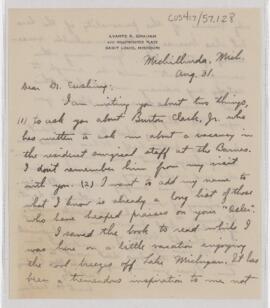 CUS417/57.128
EVARTS A. GRAHAM
WESTMORELAND PLACE
SAINT LOUIS, MISSOURI
Michillinda, Mich.
Aug. 31.
Dear Dr. Cushing:
I am writing you about two things,
(1) to ask you about Burton Clark, Jr. who
has written to ask me about a vacancy in
the resident surgical staff at the Barnes.
I don't remember him from my visit
with you (2) I want to add my name to
what I know is already a long list of those
who have heaped praises on your "Osler".
I saved the book to read while I
was here on a little vacation enjoying
the cool breezes off Lake Michigan. It has
been a tremendous inspiration to me not